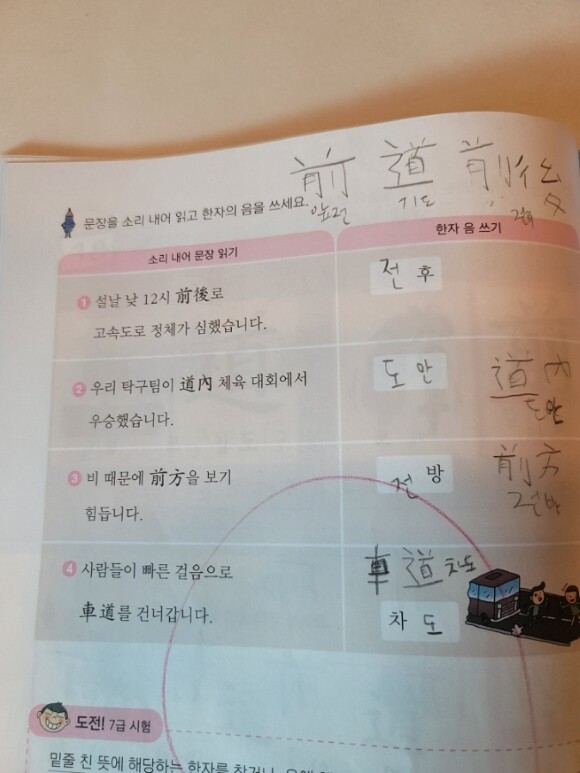 前 道 前後
앞전 기도
문장을 소리 내어 읽고 한자의 음을 쓰세요.
소리 내어 문장 읽기
한자 음 쓰기
1 설날 낮 12시 前後로
고속도로 정체가 심했습니다.
전 후
2 우리 탁구팀이 道內 체육 대회에서
우승했습니다.
도 안
道 內
도안
3 비 때문에 前方을 보기
힘듭니다.
전 방
前方
4 사람들이 빠른 걸음으로
車道를 건너갑니다.
車 道 차도
차 도
도전! 7급 시험
밑줄 친 뜻에 해당하는 한자를